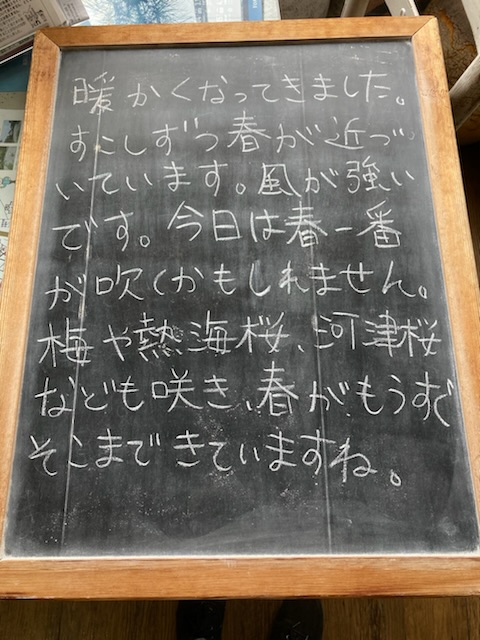 暖かくなってきました。
すこしずつ春が近づ
いています。風が強い
です。今日は春一番
が吹くかもしれません。
梅や熱海桜、河津桜
なども咲き、春がもうすぐ
そこまできていますね。